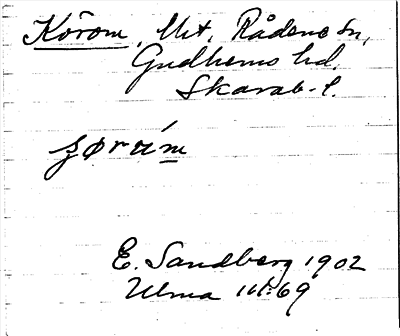 Körom, Mt. Rådene sn,
Gudhems hd.
Skarab. l.
E. Sandberg 1902
Ulma 111:69